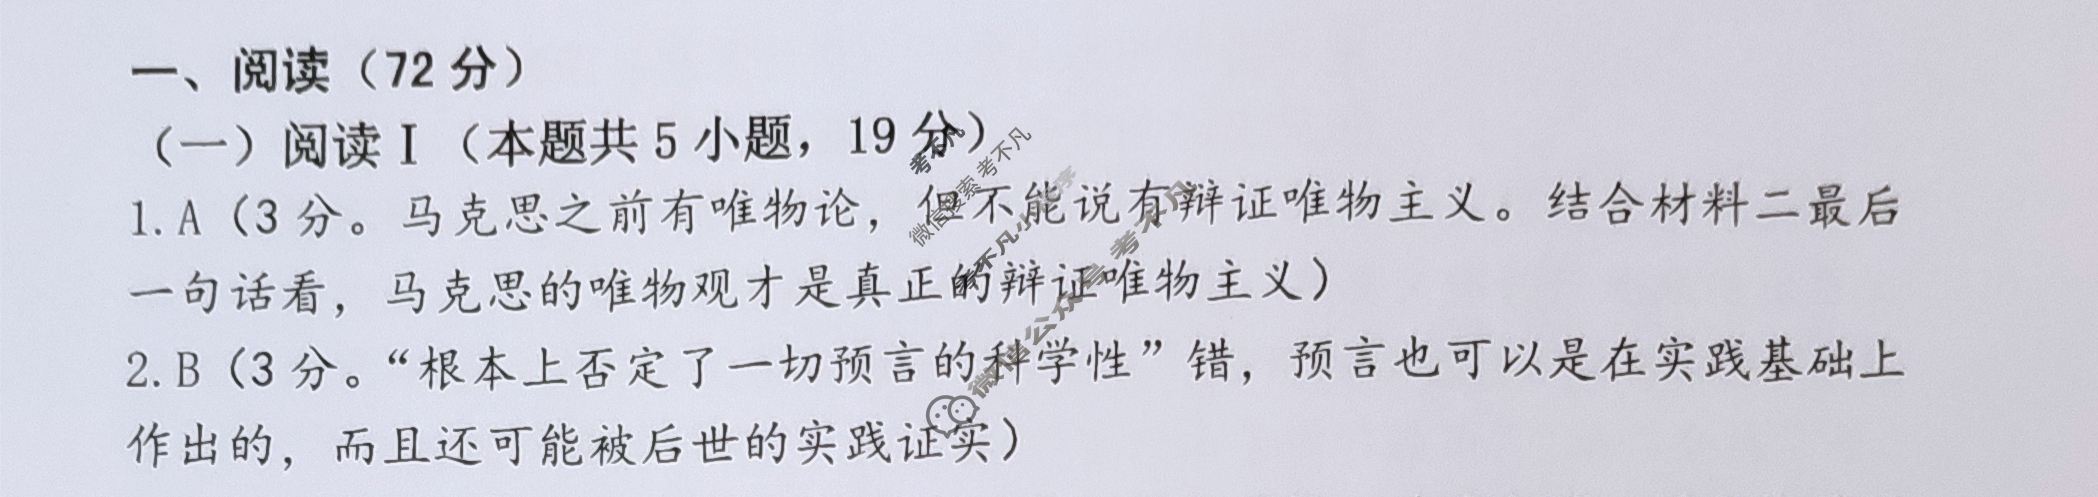 一、阅读（72 分）
（一）阅读Ⅰ（本题共 5 小题，19 分）
1.A（3 分。马克思之前有唯物论，但不能说有辩证唯物主义。结合材料二最后
一句话看，马克思的唯物观才是真正的辩证唯物主义）
2.B（3 分。“根本上否定了一切预言的科学性”错，预言也可以是在实践基础上
作出的，而且还可能被后世的实践证实）
考不凡
微信搜索 考不凡
考不凡小程序
微信公众号 考不凡